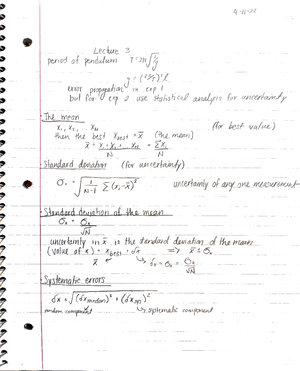 4-11-22
Lecture 3
period of pendulum T = 2π√(l/g)
g = (2π/T)² l
error propagation in exp 1
but for exp 2 use statistical analysis for uncertainty
The mean
x₁, x₂, ... xN (for best value)
then the best xbest = x̄ (the mean)
x̄ = (x₁ + x₂ + ... xN)/N = Σxᵢ/N
Standard deviation (for uncertainty)
σx = √(1/(N-1) Σ(xᵢ - x̄)²) uncertainty of any one measurement
Standard deviation of the mean
σx̄ = σx/√N
uncertainty in x̄ is the standard deviation of the mean
(value of x) = xbest ± δx ⇒ x̄ ± σx̄
x̄ δx = σx̄ = σx/√N
Systematic errors
δx = √((δx random)² + (δx sys)²)
random component systematic component